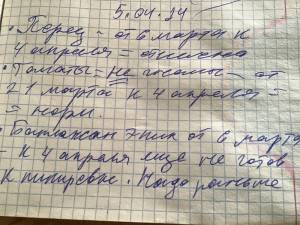 5.04.24
• Перец - от 6 марта к
4 апреля = отлично
• Томаты = не - от
21 марта к 4 апреля =
= норм.
• Баклажан Эпик от 6 марта
- к 4 апреля еще не готов
к пикировке. Надо раньше